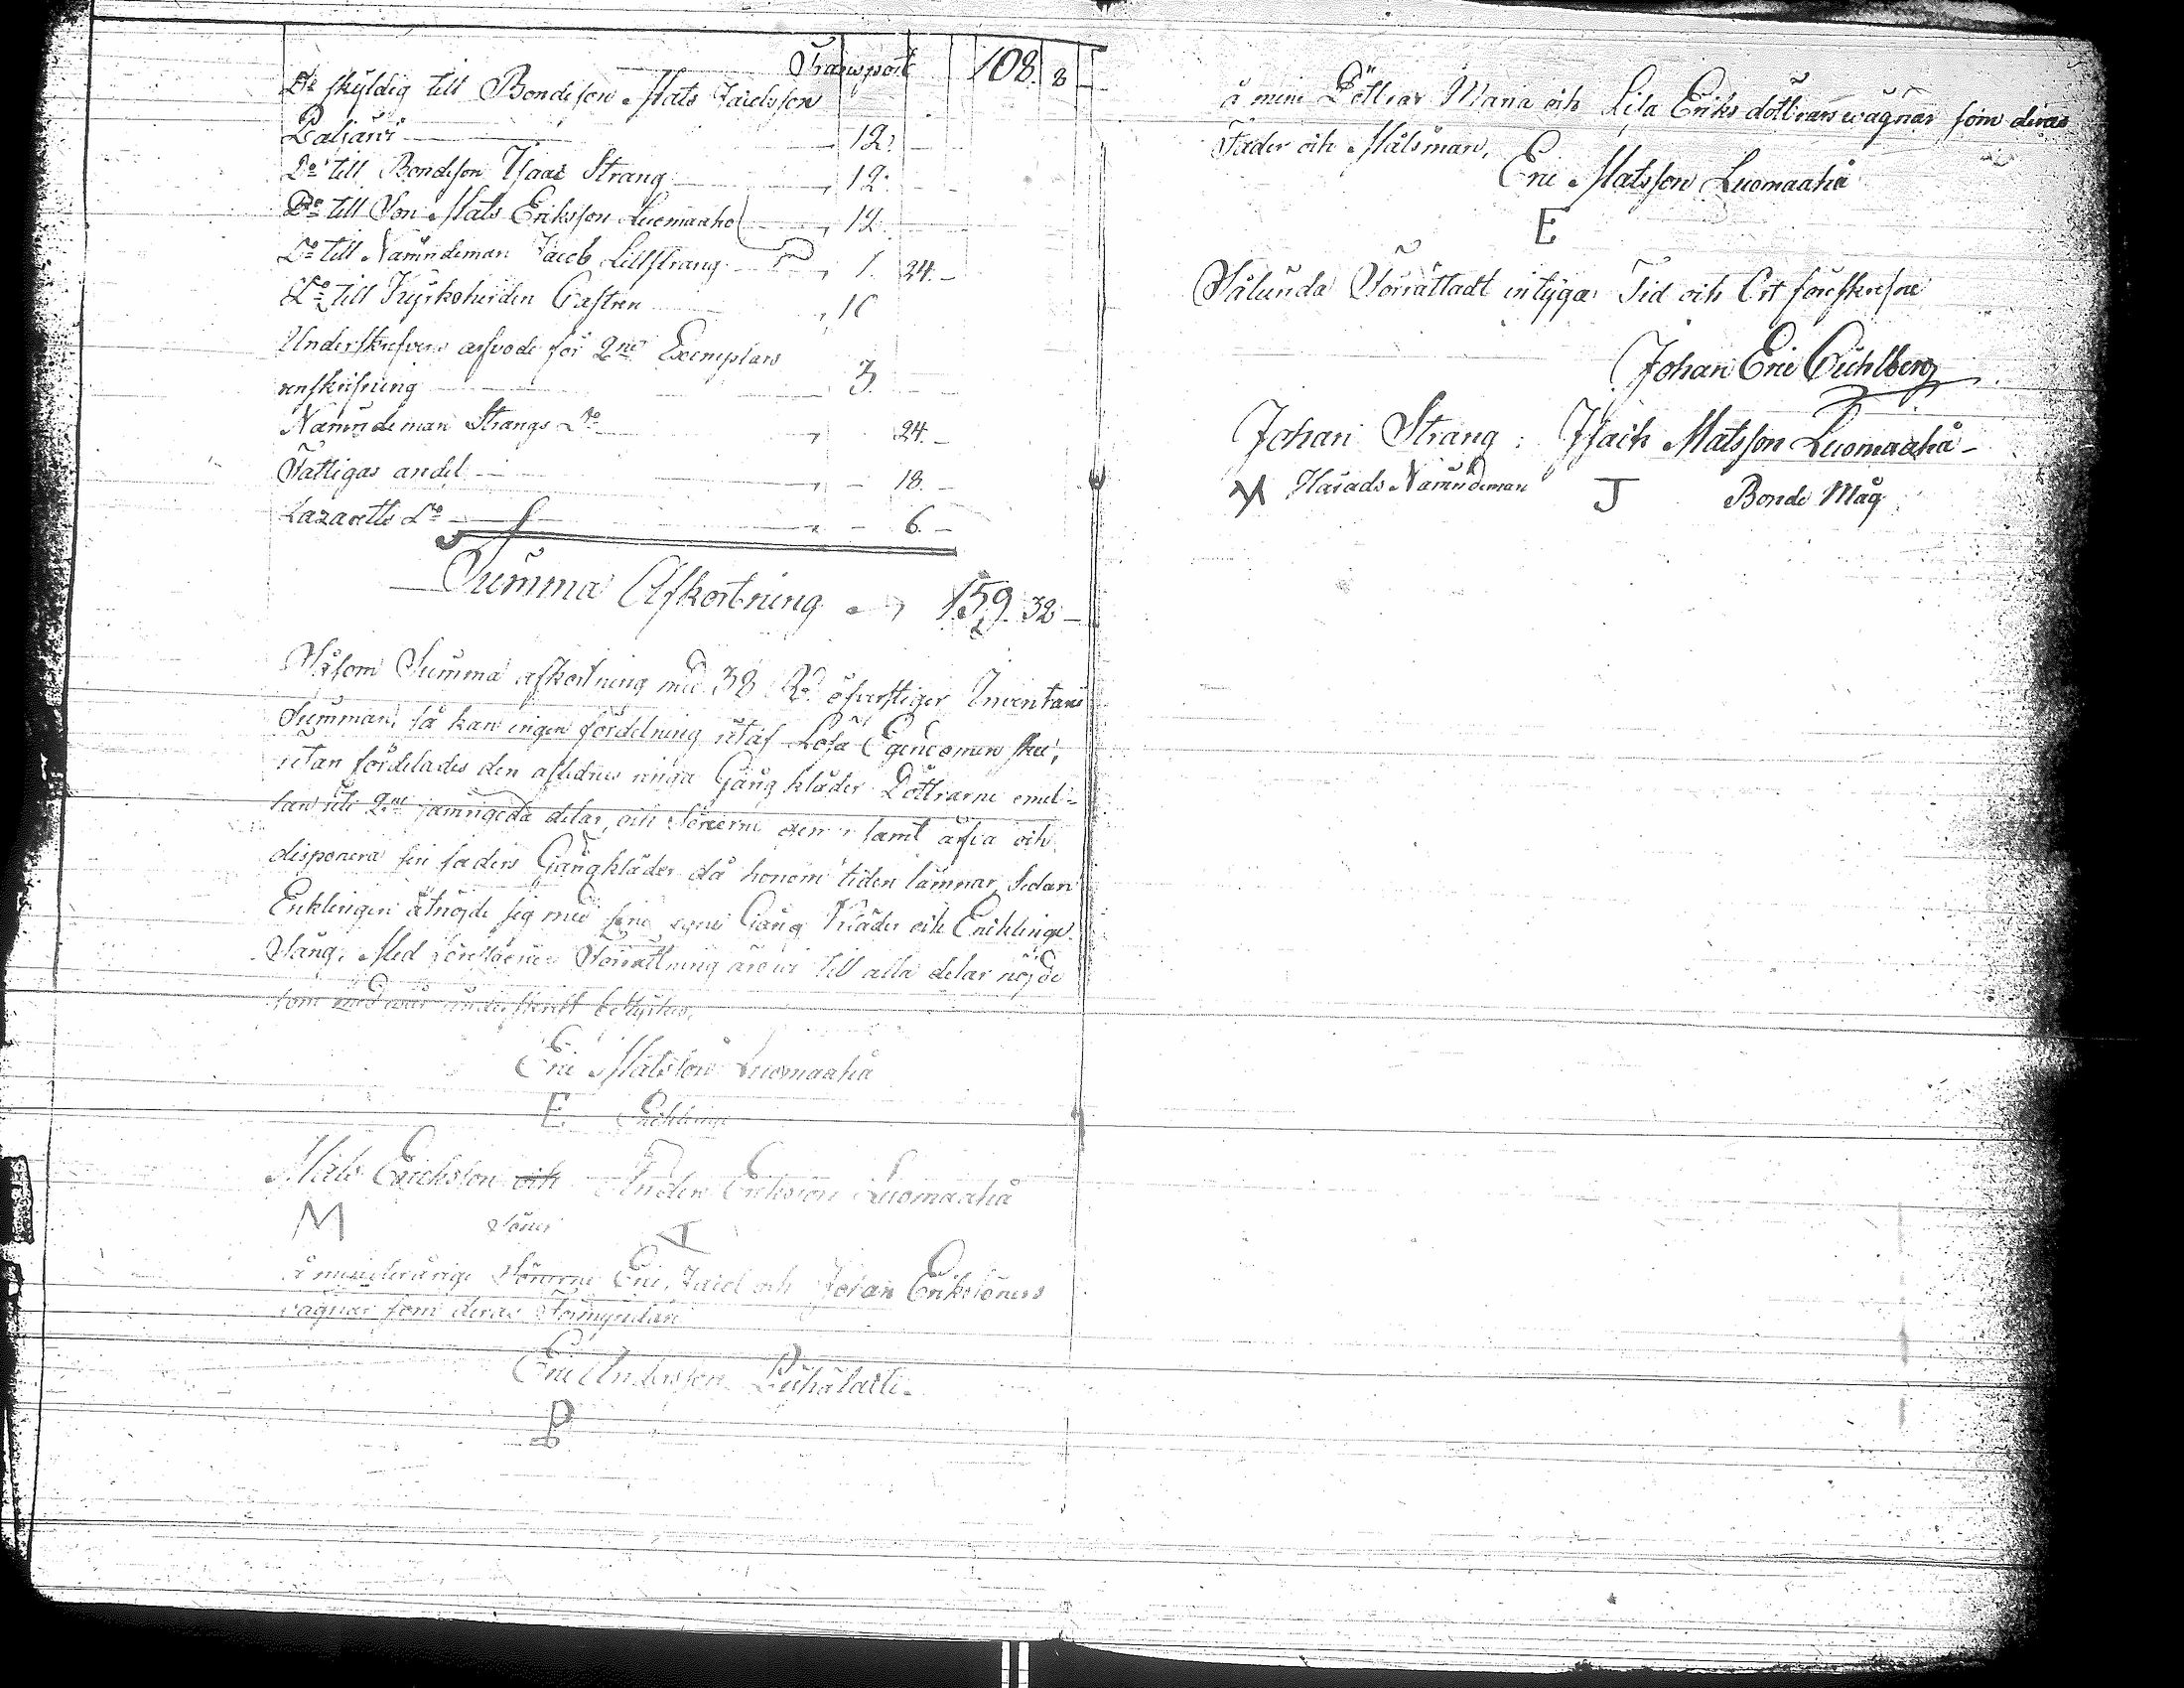 Transport 108. 8
Do skyldig till Bondeson Mats Jaicksson
Paljarvi 12.
Do till Bondeson Isaac Strang 12.
Do till Son Mats Eriksson Luomaaho 12.
Do till Nämndeman Jacob Lillstrang 1. 24.
Do till Kyrkoherden Castren 10
Underskrefvens arfvode för 2ne Exemplars
renskrifning 3.
Nämndeman Strangs Do 24.
Fattigas andel 18.
Lazaretts Do 6.
Summa Afkortning 159. 32
Såsom Summa afkortning med 38 Rd öfverstiger Inventarii
Summan, så kan ingen fördelning utaf Lösa Egendomen ske,
utan fördelades den aflednes ringa Gång kläder Döttrarne emel-
lan uti 2ne jämngoda delar, och Sönerne samt ärfva och
disponera sin faders Gångkläder då honom tiden lämnar, Sedan
Enklingen åtnöjde sig med sine egne Gång Kläder och Enklinge
Säng. Med Förrättning äro wi till alla delar nöjde
som med wår underskrift bestyrkes.
Eric Matsson Luomaaho
E Enkling
Mats Erickson och Anders Ericsson Luomaaho
M Söner A
å minderårige Sönerne Eric, Jaicl och Johan Erikssöners
vägnar som deras Förmyndare
Eric Andersson
P
å mine Döttrar Maria och Lisa Eriks döttrars wägnar som deras
Fader och Målsman,
Eric Matsson Luomaaho
E
Sålunda Förrättadt intyga Tid och Ort föreskrefne
Johan Eric Öuhlberg
Johan Strang. Isach Matsson Luomaaho
Härads Nämndeman J Bonde Måg